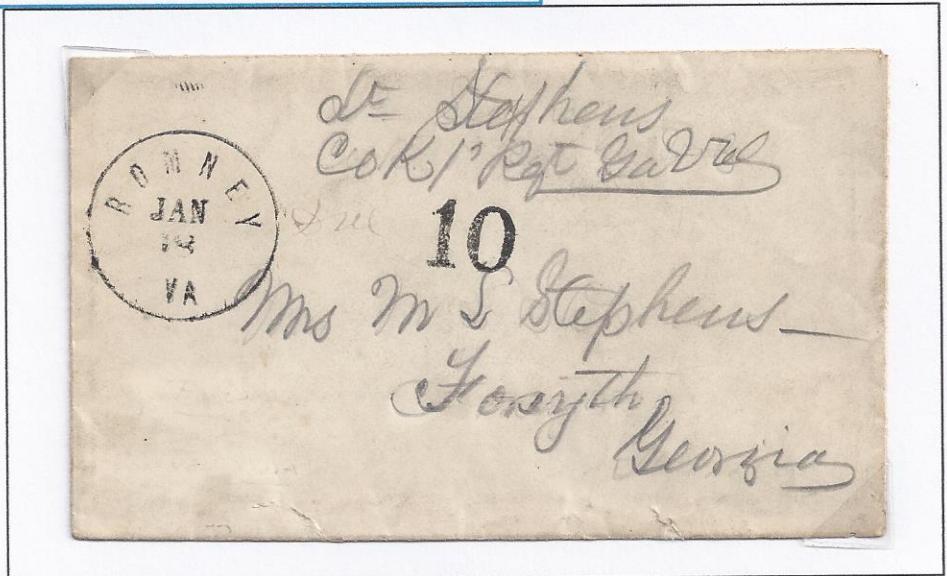 Lt Stephens
Co K 1st Rgt Ga Vol
ROMNEY
JAN
18
VA
Due
10
Mrs M L Stephens
Forsyth
Georgia